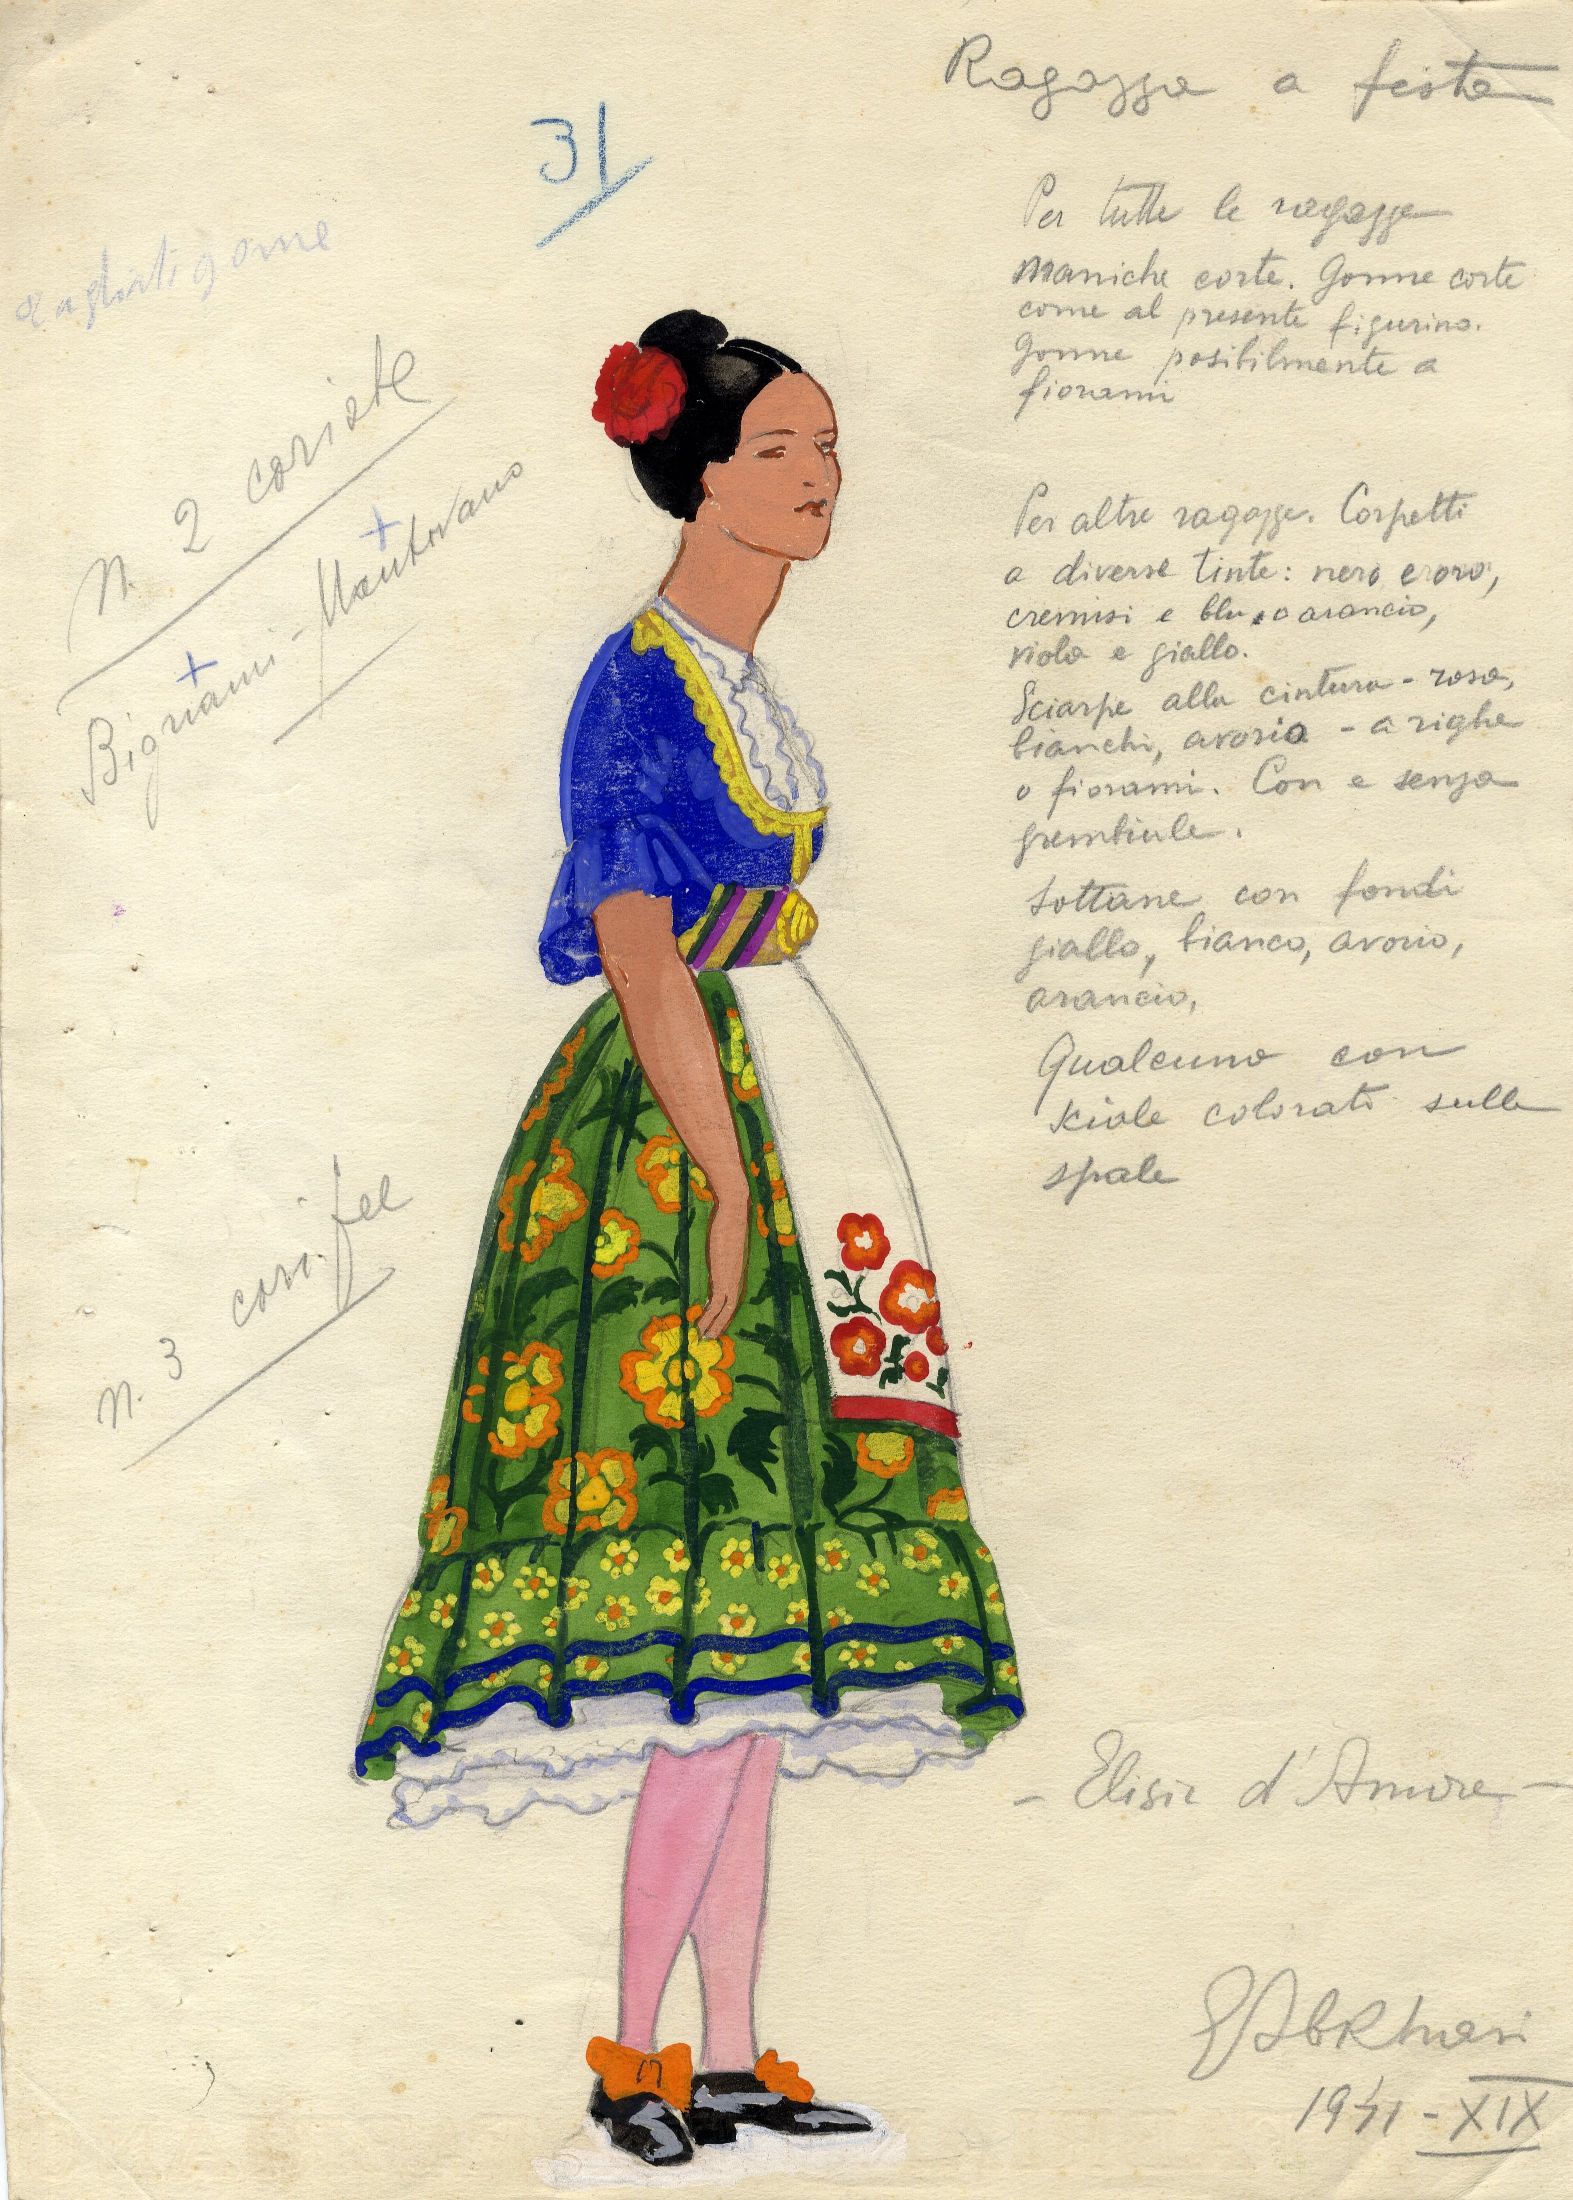 Ragazza a festa
31
Per tutte le ragazze
Maniche corte. Gonne corte
come al presente figurino.
Gonne posibilmente a
fiorami
N. 2 coriste
Bignami - Mantovano
Per altre ragazze. Corpetti
a diverse tinte: nero e oro,
cremisi e blu, o arancio,
viola e giallo.
Sciarpe alla cintura - rosa,
bianchi, avorio - a righe
o fiorami. Con e senza
grembiule.
Sottane con fondi
giallo, bianco, avorio,
arancio,
Qualcuno con
sciale colorati sulle
spale
N. 3 corifee
- Elisir d'Amore -
1941 - XIX